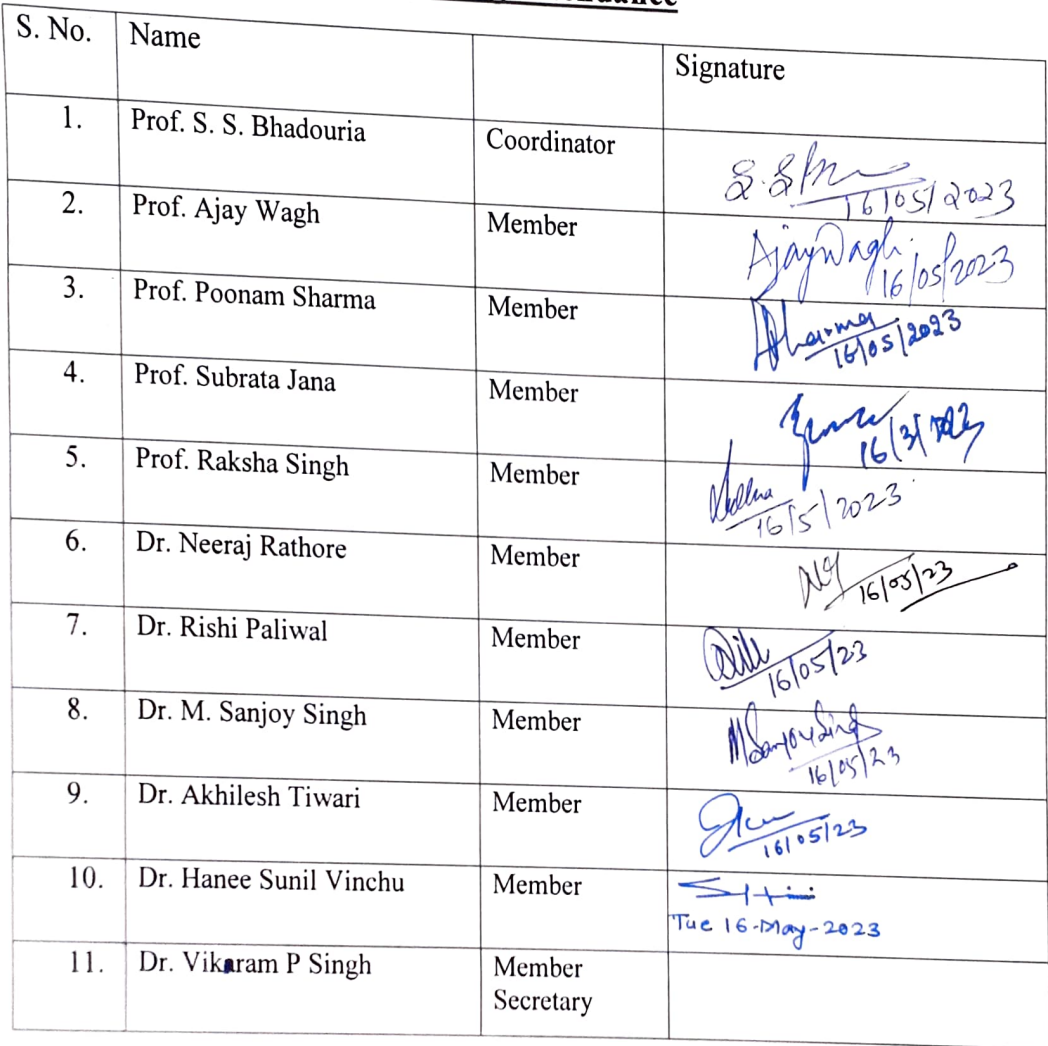 S. No. Name Signature
1. Prof. S. S. Bhadouria Coordinator
16/05/2023
2. Prof. Ajay Wagh Member AjayWagh
16/05/2023
3. Prof. Poonam Sharma Member
16/05/2023
4. Prof. Subrata Jana Member
16/3/2023
5. Prof. Raksha Singh Member
16/5/2023
6. Dr. Neeraj Rathore Member
16/05/23
7. Dr. Rishi Paliwal Member
16/05/23
8. Dr. M. Sanjoy Singh Member MSanjoySingh
16/05/23
9. Dr. Akhilesh Tiwari Member
16/05/23
10. Dr. Hanee Sunil Vinchu Member
Tue 16-May-2023
11. Dr. Vikaram P Singh Member
Secretary